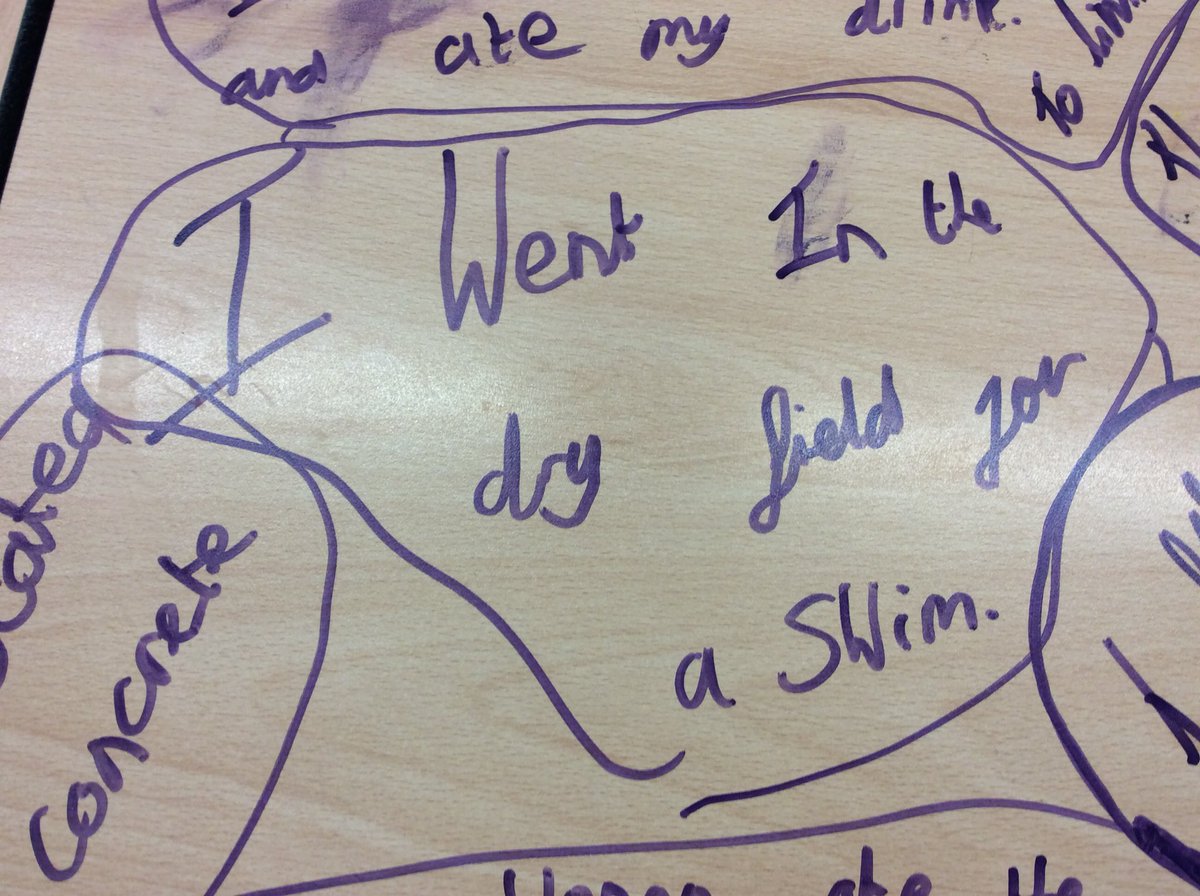 and ate my drink.
to
I Went In the
dry field for
a Swim.
concrete
ate the